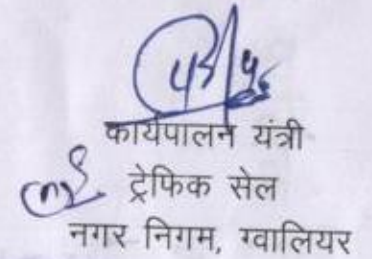 कार्यपालन यंत्री
ट्रेफिक सेल
नगर निगम, ग्वालियर